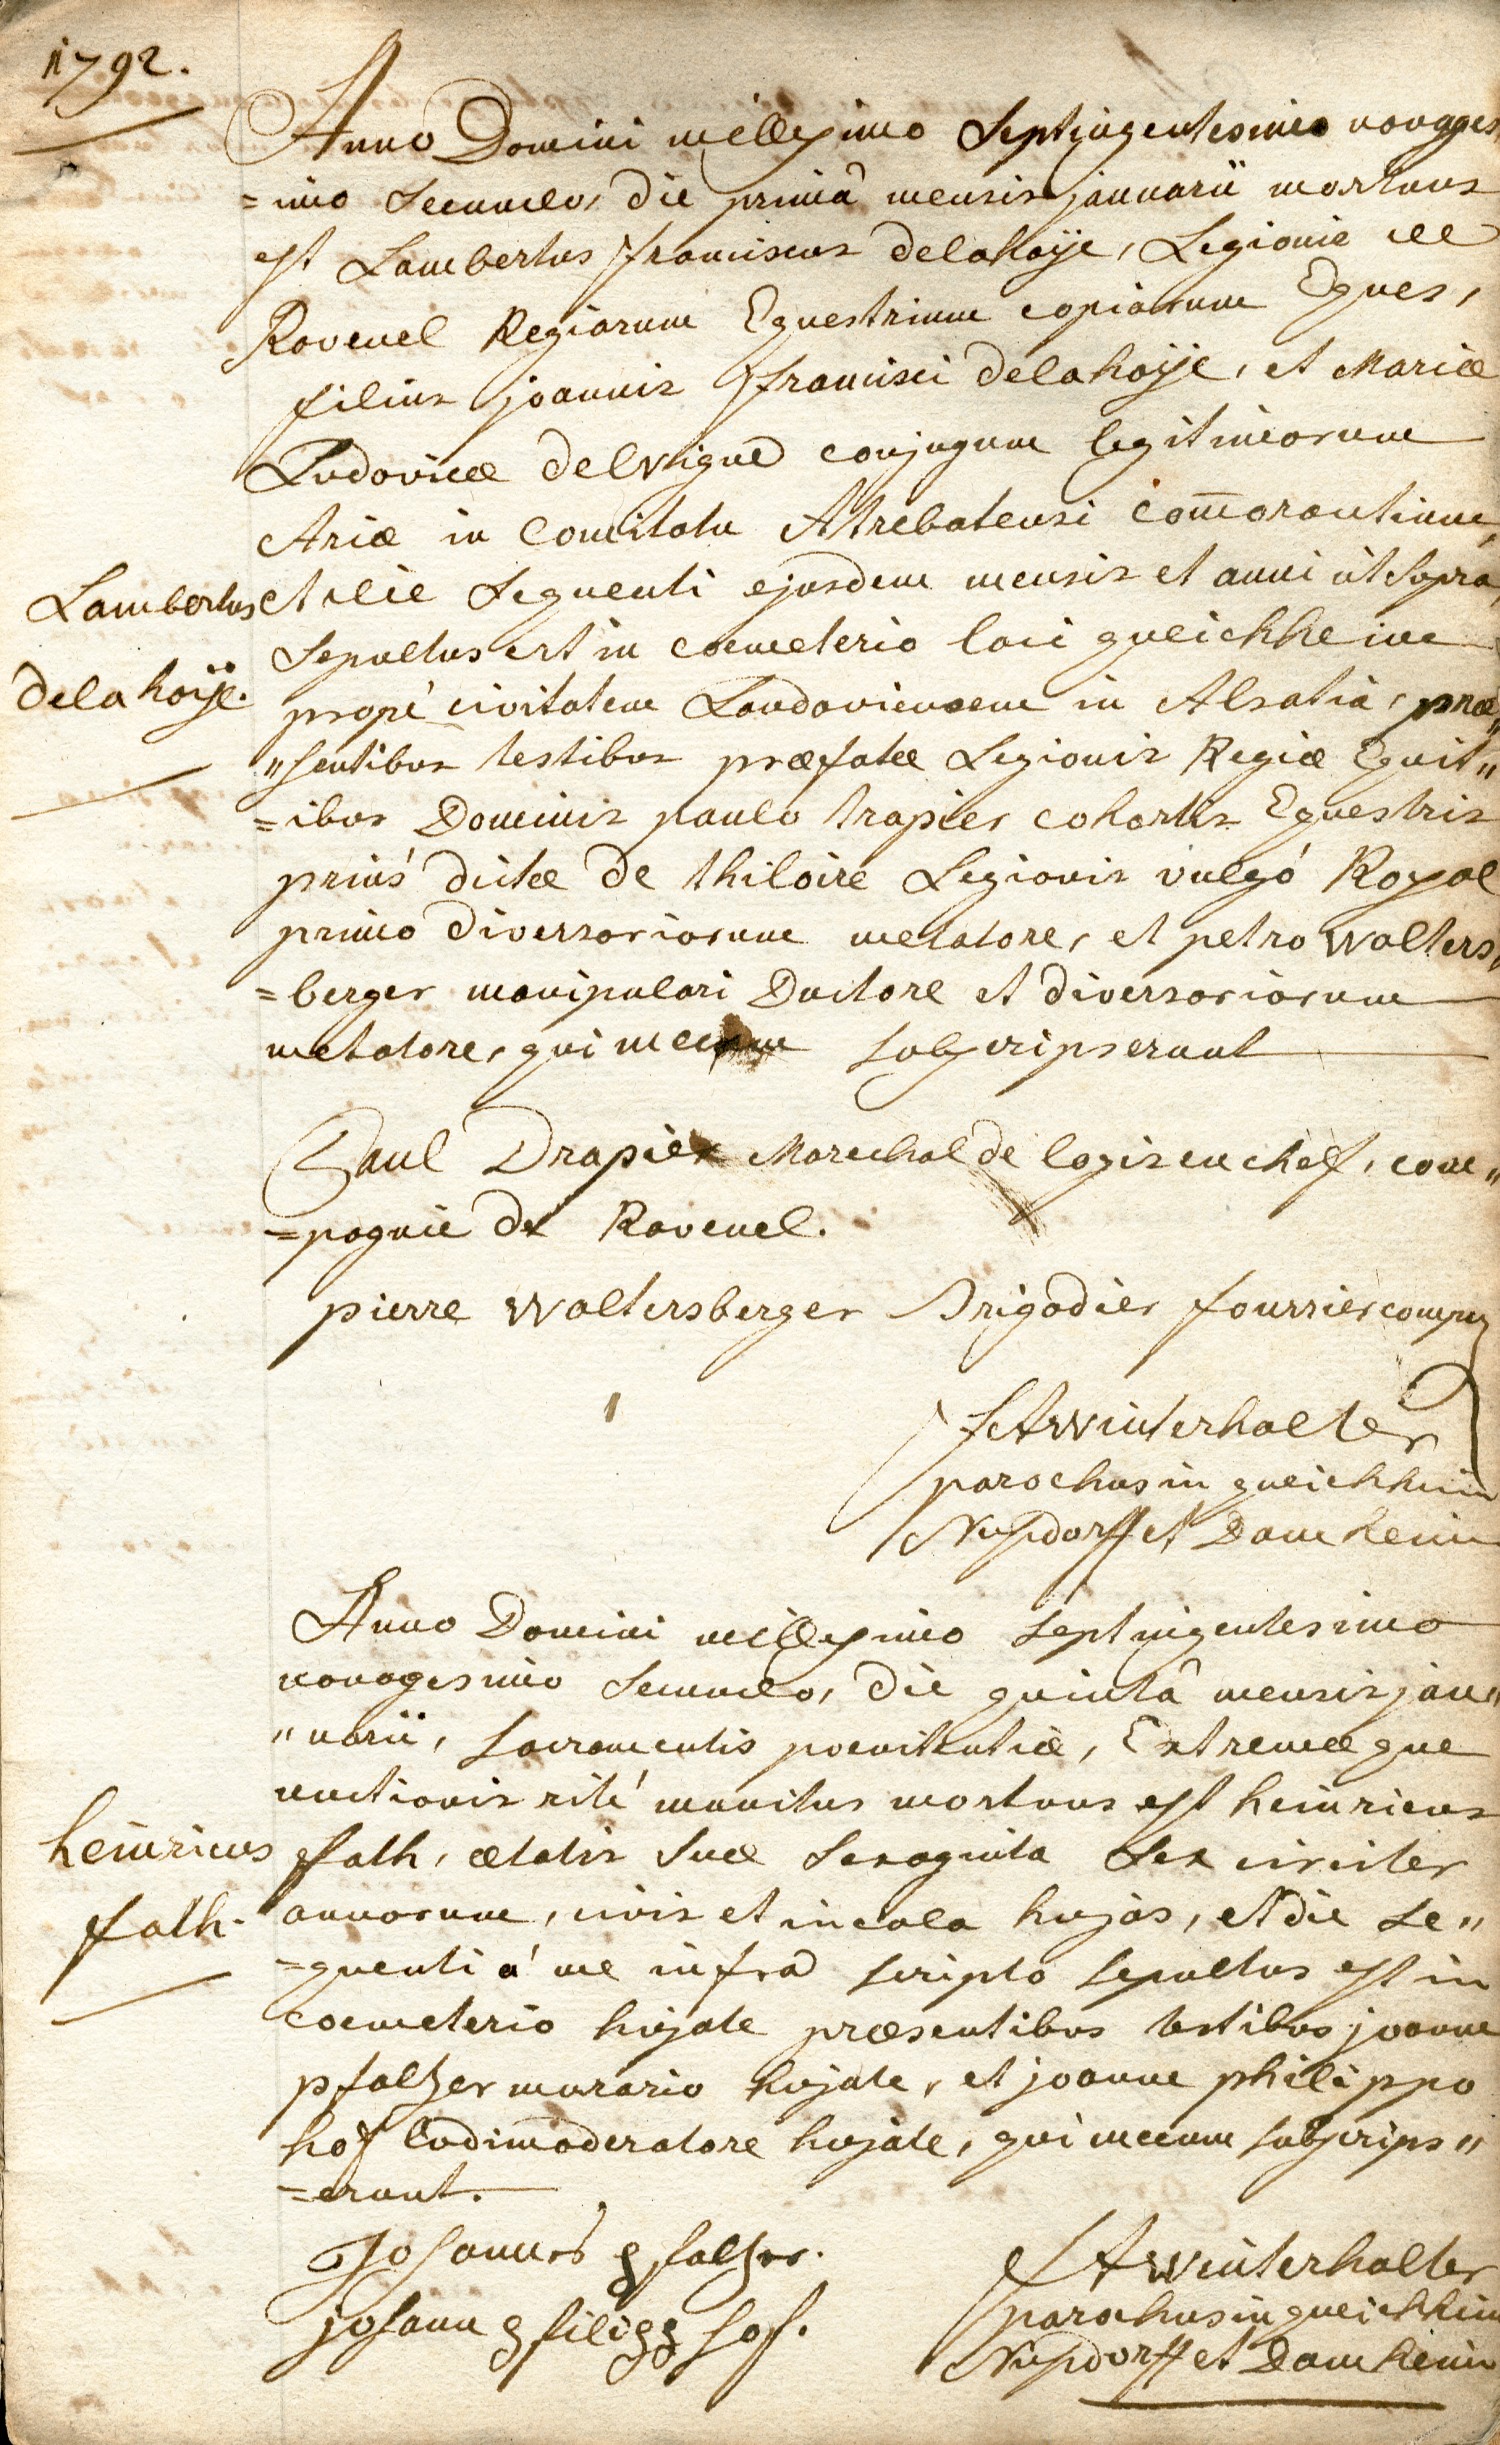 1792.
Anno Domini millesimo Septingentesimo nonages
=imo Secundo, die primâ mensis januarii mortuus
est Lambertus franciscus delahaÿe, Legionis de
Ravenel Regiarum Equestrium copiarum Eques,
filius joannis francisci delahaÿe, et Mariæ
Ludovicæ delvigne conjugum legitimorum
Ariæ in Comitatu Atrebatensi com̄orantium,
Lambertus
delahaÿe.
et die Sequenti ejusdem mensis et anni ut Supra,
Sepultus est in coemeterio loci queichheim
propè civitatem Landaviensem in Alsatia, præ„
„sentibus testibus præfatæ Legionis Regiæ Equit„
=ibus Dominis paulo trapier cohortis Equestris
priùs dictæ de thiloire Legionis vulgò Royal
primo diversoriorum metatore, et petro walters,
=berger manipulari Ductore et diversoriorum
metatore, qui mecum subscripserunt
Paul Drapier Marechal de logis en chef, com„
=pagnie de Ravenel.
pierre waltersberger Brigadier fourrier
FAwinterhalter
parochus in queichheim
Nusdorff et Damheim
Anno Domini millesimo Septuigentesimo
nonagesimo Secundo, die quintâ mensis jan„
„uarii, sacramentis poenitentiæ, Extremæque
unctionis ritè munitus mortuus est heinricus
heinricus
fath.
fath, ætatis suæ Sexaginta Sex circiter
annorum, civis et incola hujas, et die Se„
=quenti à me infra scripto sepultus est in
coemeterio hujate præsentibus testibus joanne
pfaltzer murario hujate, et joanne philippo
hof Ludimoderatore hujate, qui mecum subscrips„
=erunt.
Johannes pfaltzer.
johann pfilipp hof.
FAwinterhalter
parochus in queichheim
Nusdorff et Damheim